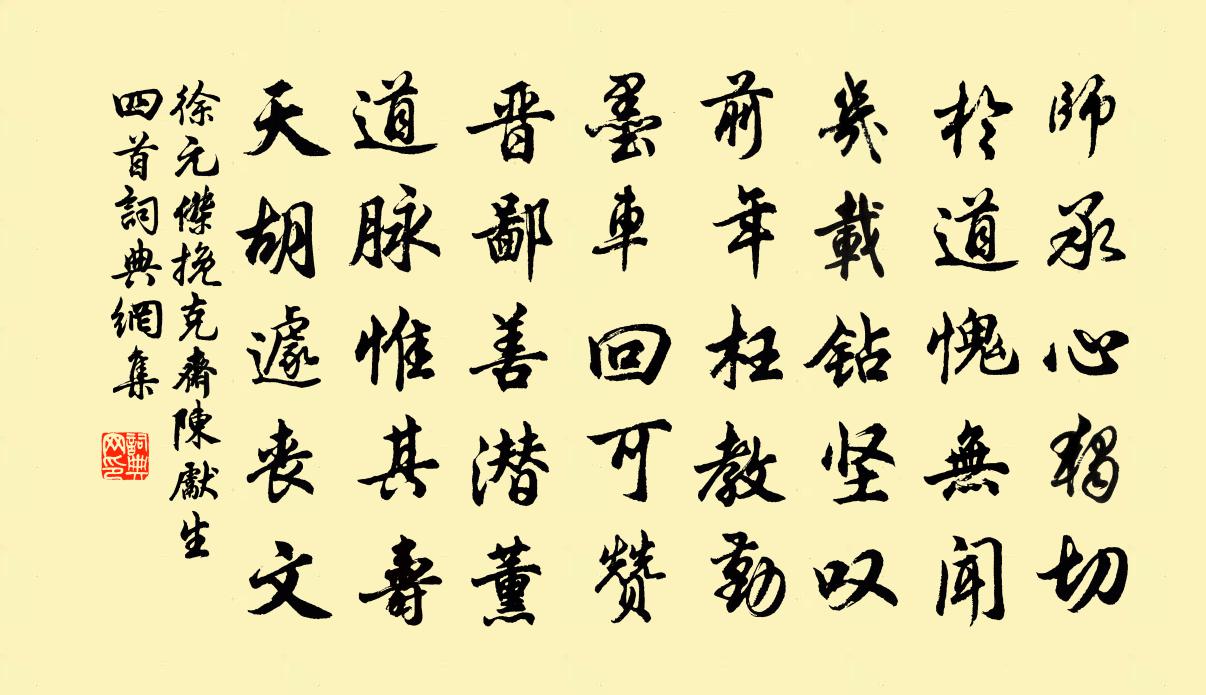 師承心獨切
於道愧無聞
幾載鉆坚叹
前年枉教勤
墨車回可赞
晋鄙善潜薰
道脉惟其壽
天胡遽丧文
徐元傑挽克齋陳獻生
四首詞典網集
詞典网印